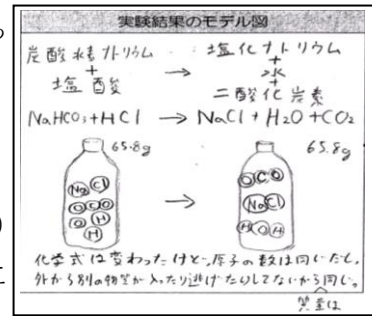 実験結果のモデル図
炭酸水素ナトリウム → 塩化ナトリウム
+ +
塩酸 水
+
二酸化炭素
NaHCO₃+HCl → NaCl+H₂O+CO₂
65.8g 65.8g
Na Cl → O C O
O C O Na Cl
O H H O H
H
化学式は変わったけど、原子の数は同じだし、
外から別の物質が入ったり逃げたりしてないから同じ。
質量は